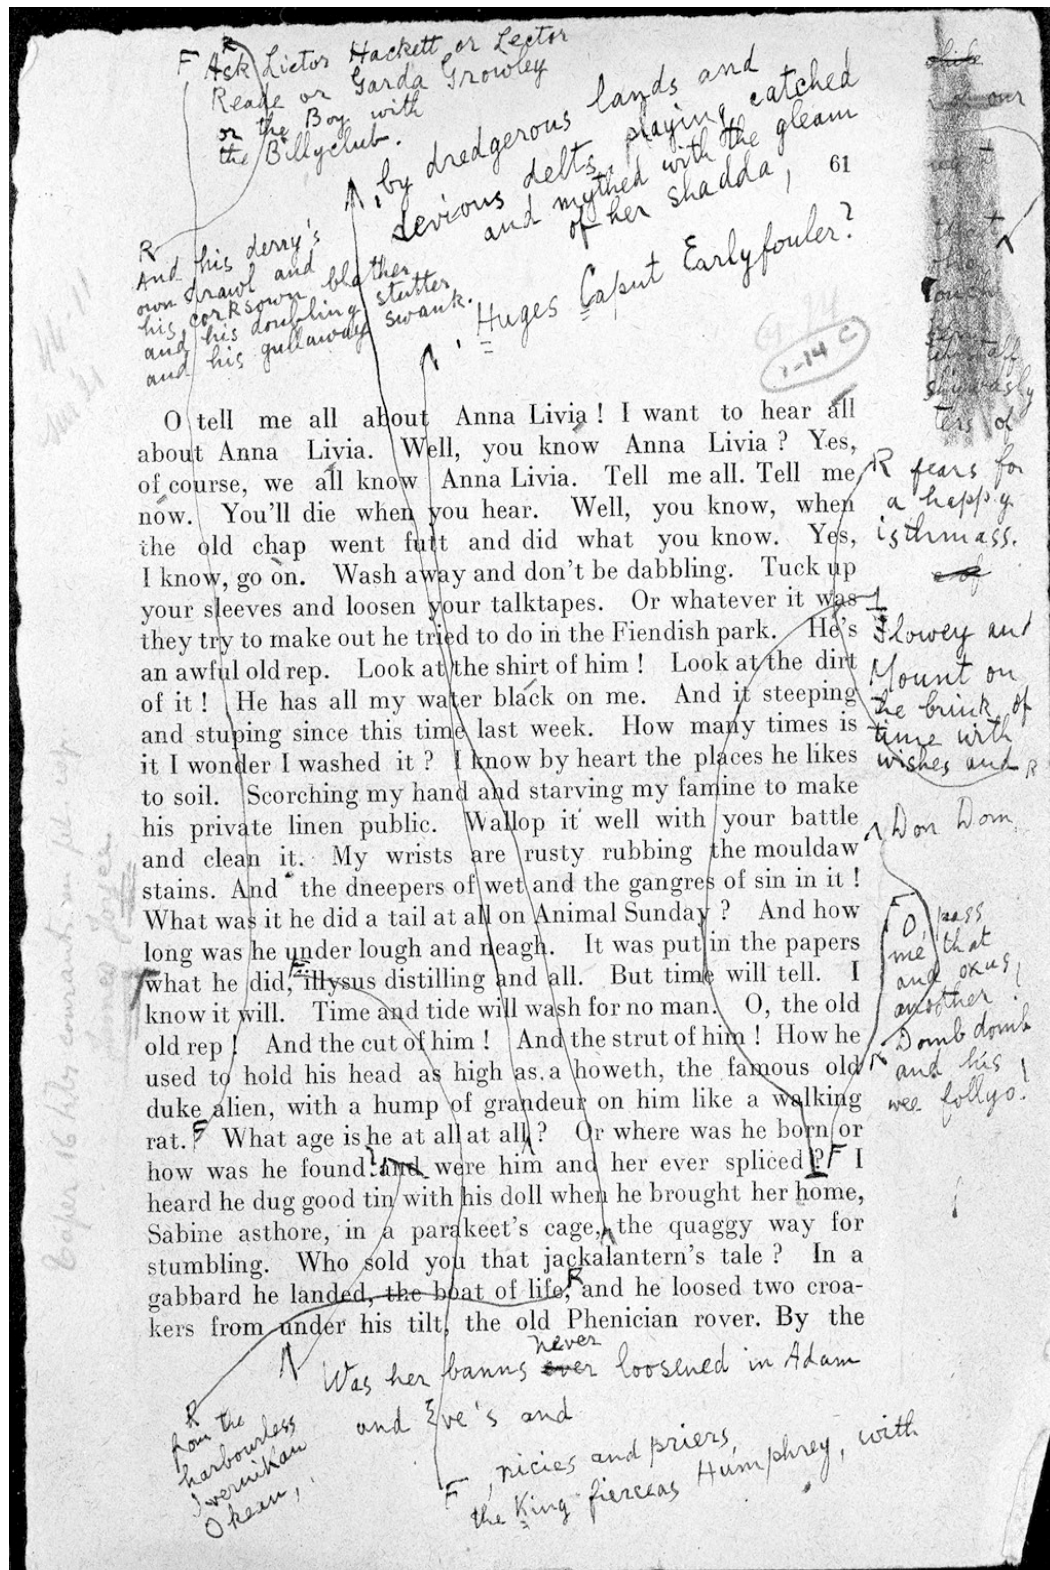 F Ask Lictor Hackett or Lector
Reade or Garda Growley
or the Boy with
the Billyclub.
, by dredgerous lands and
devious delts, playing catched
and mythed with the gleam
of her shadda,
61
R
And his derry's
own drawl and
his corksown blather
and his doubling stutter
and his gullaway swank.
, Huges Caput Earlyfouler?
1-14 C
O tell me all about Anna Livia ! I want to hear all
about Anna Livia. Well, you know Anna Livia ? Yes,
of course, we all know Anna Livia. Tell me all. Tell me
now. You'll die when you hear. Well, you know, when
the old chap went futt and did what you know. Yes,
I know, go on. Wash away and don't be dabbling. Tuck up
your sleeves and loosen your talktapes. Or whatever it was
they try to make out he tried to do in the Fiendish park. He's
an awful old rep. Look at the shirt of him ! Look at the dirt
of it ! He has all my water black on me. And it steeping
and stuping since this time last week. How many times is
it I wonder I washed it ? I know by heart the places he likes
to soil. Scorching my hand and starving my famine to make
his private linen public. Wallop it well with your battle
and clean it. My wrists are rusty rubbing the mouldaw
stains. And the dneepers of wet and the gangres of sin in it !
What was it he did a tail at all on Animal Sunday ? And how
long was he under lough and neagh. It was put in the papers
what he did, illysus distilling and all. But time will tell. I
know it will. Time and tide will wash for no man. O, the old
old rep ! And the cut of him ! And the strut of him ! How he
used to hold his head as high as a howeth, the famous old
duke alien, with a hump of grandeur on him like a walking
rat. F What age is he at all at all ? Or where was he born or
how was he found ! and were him and her ever spliced ? F I
heard he dug good tin with his doll when he brought her home,
Sabine asthore, in a parakeet's cage, the quaggy way for
stumbling. Who sold you that jackalantern's tale ? In a
gabbard he landed, the boat of life, R and he loosed two croa-
kers from under his tilt, the old Phenician rover. By the
R fears for
a happy
isthmass.
of
Flowey and
Mount on
the brink of
time with
wishes and R
Don Dom
O, pass
me that
and oxus
another !
Domb domb
and his
wee follyo!
never
Was her banns ever loosened in Adam
and Eve's and
R
from the
harbourless
Ivernikan
Okean,
F , nicies and priers,
the King fierceas Humphrey, with